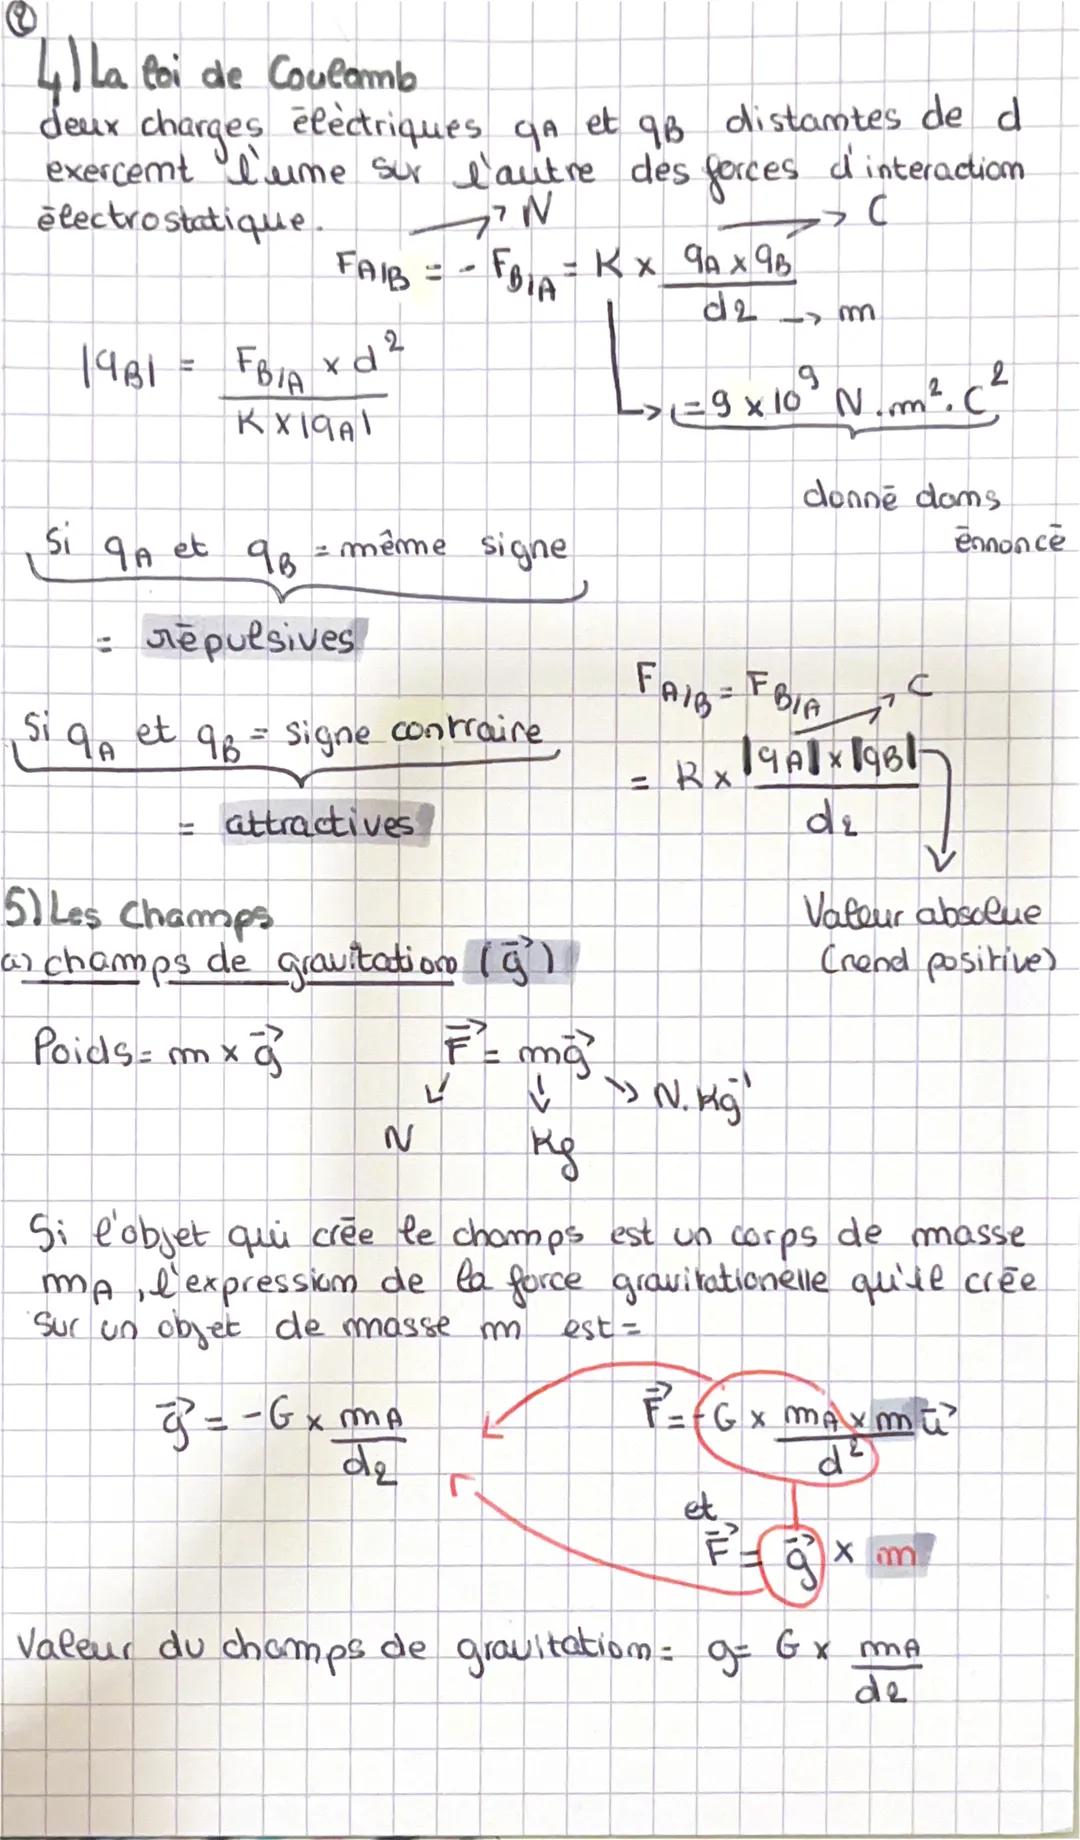 2
4) La loi de Coulomb
deux charges électriques qA et qB distantes de d
exercent l'une sur l'autre des forces d'interaction
électrostatique.
→ N → C
FA/B = - FB/A = K x qA x qB
d2 → m
|qB| = FB/A x d²
K x |qA|
→ = 9 x 10⁹ N.m².C²
donné dans
énnoncé
Si qA et qB = même signe
= répulsives
FA/B = FB/A → C
Si qA et qB = signe contraire
= K x |qA| x |qB|
d2
= attractives
Valeur absolue
(rend positive)
5) Les Champs
a) champs de gravitation (g⃗)
Poids = m x g⃗ F⃗ = mg⃗
N Kg → N.Kg⁻¹
Si l'objet qui crée le champs est un corps de masse
mA, l'expression de la force gravitationelle qu'il crée
sur un objet de masse m est =
g⃗ = -G x mA
d2
F⃗ = -G x mA x m u⃗
d²
et
F⃗ = g⃗ x m
Valeur du champs de gravitation = g = G x mA
d2